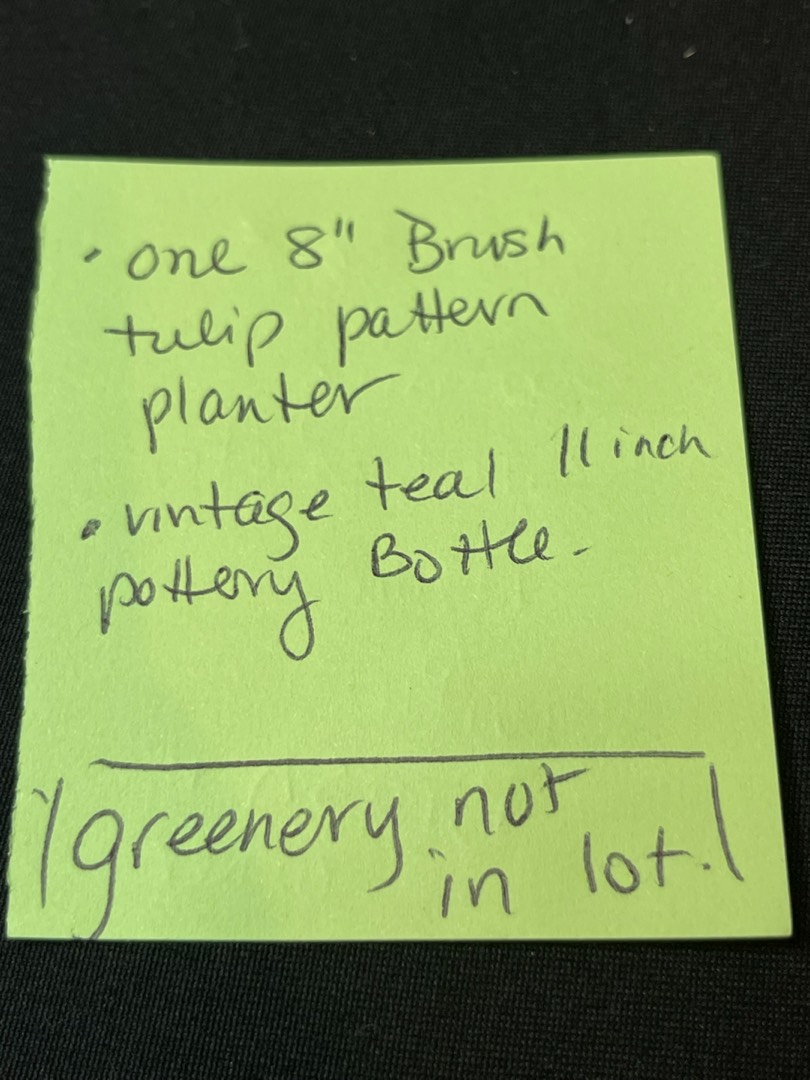 • one 8" Brush
tulip pattern
planter
• vintage teal 11 inch
pottery Bottle.
greenery not
in lot.